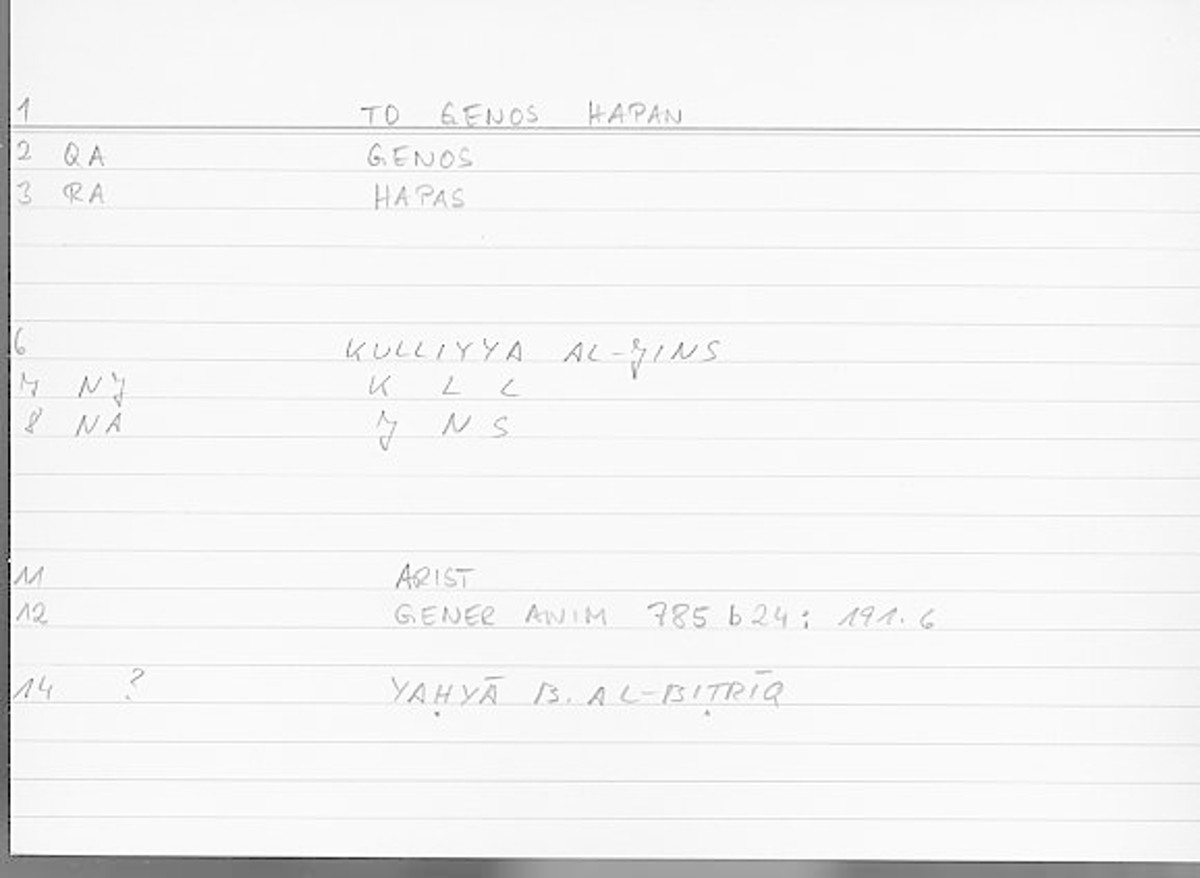 1 TO GENOS HAPAN
2 QA GENOS
3 RA HAPAS
6 KULLIYYA AL-JINS
7 NJ K L L
8 NA J N S
11 ARIST
12 GENER ANIM 785 b24 : 191.6
14 ? YAḤYĀ B. AL-BIṬRĪQ